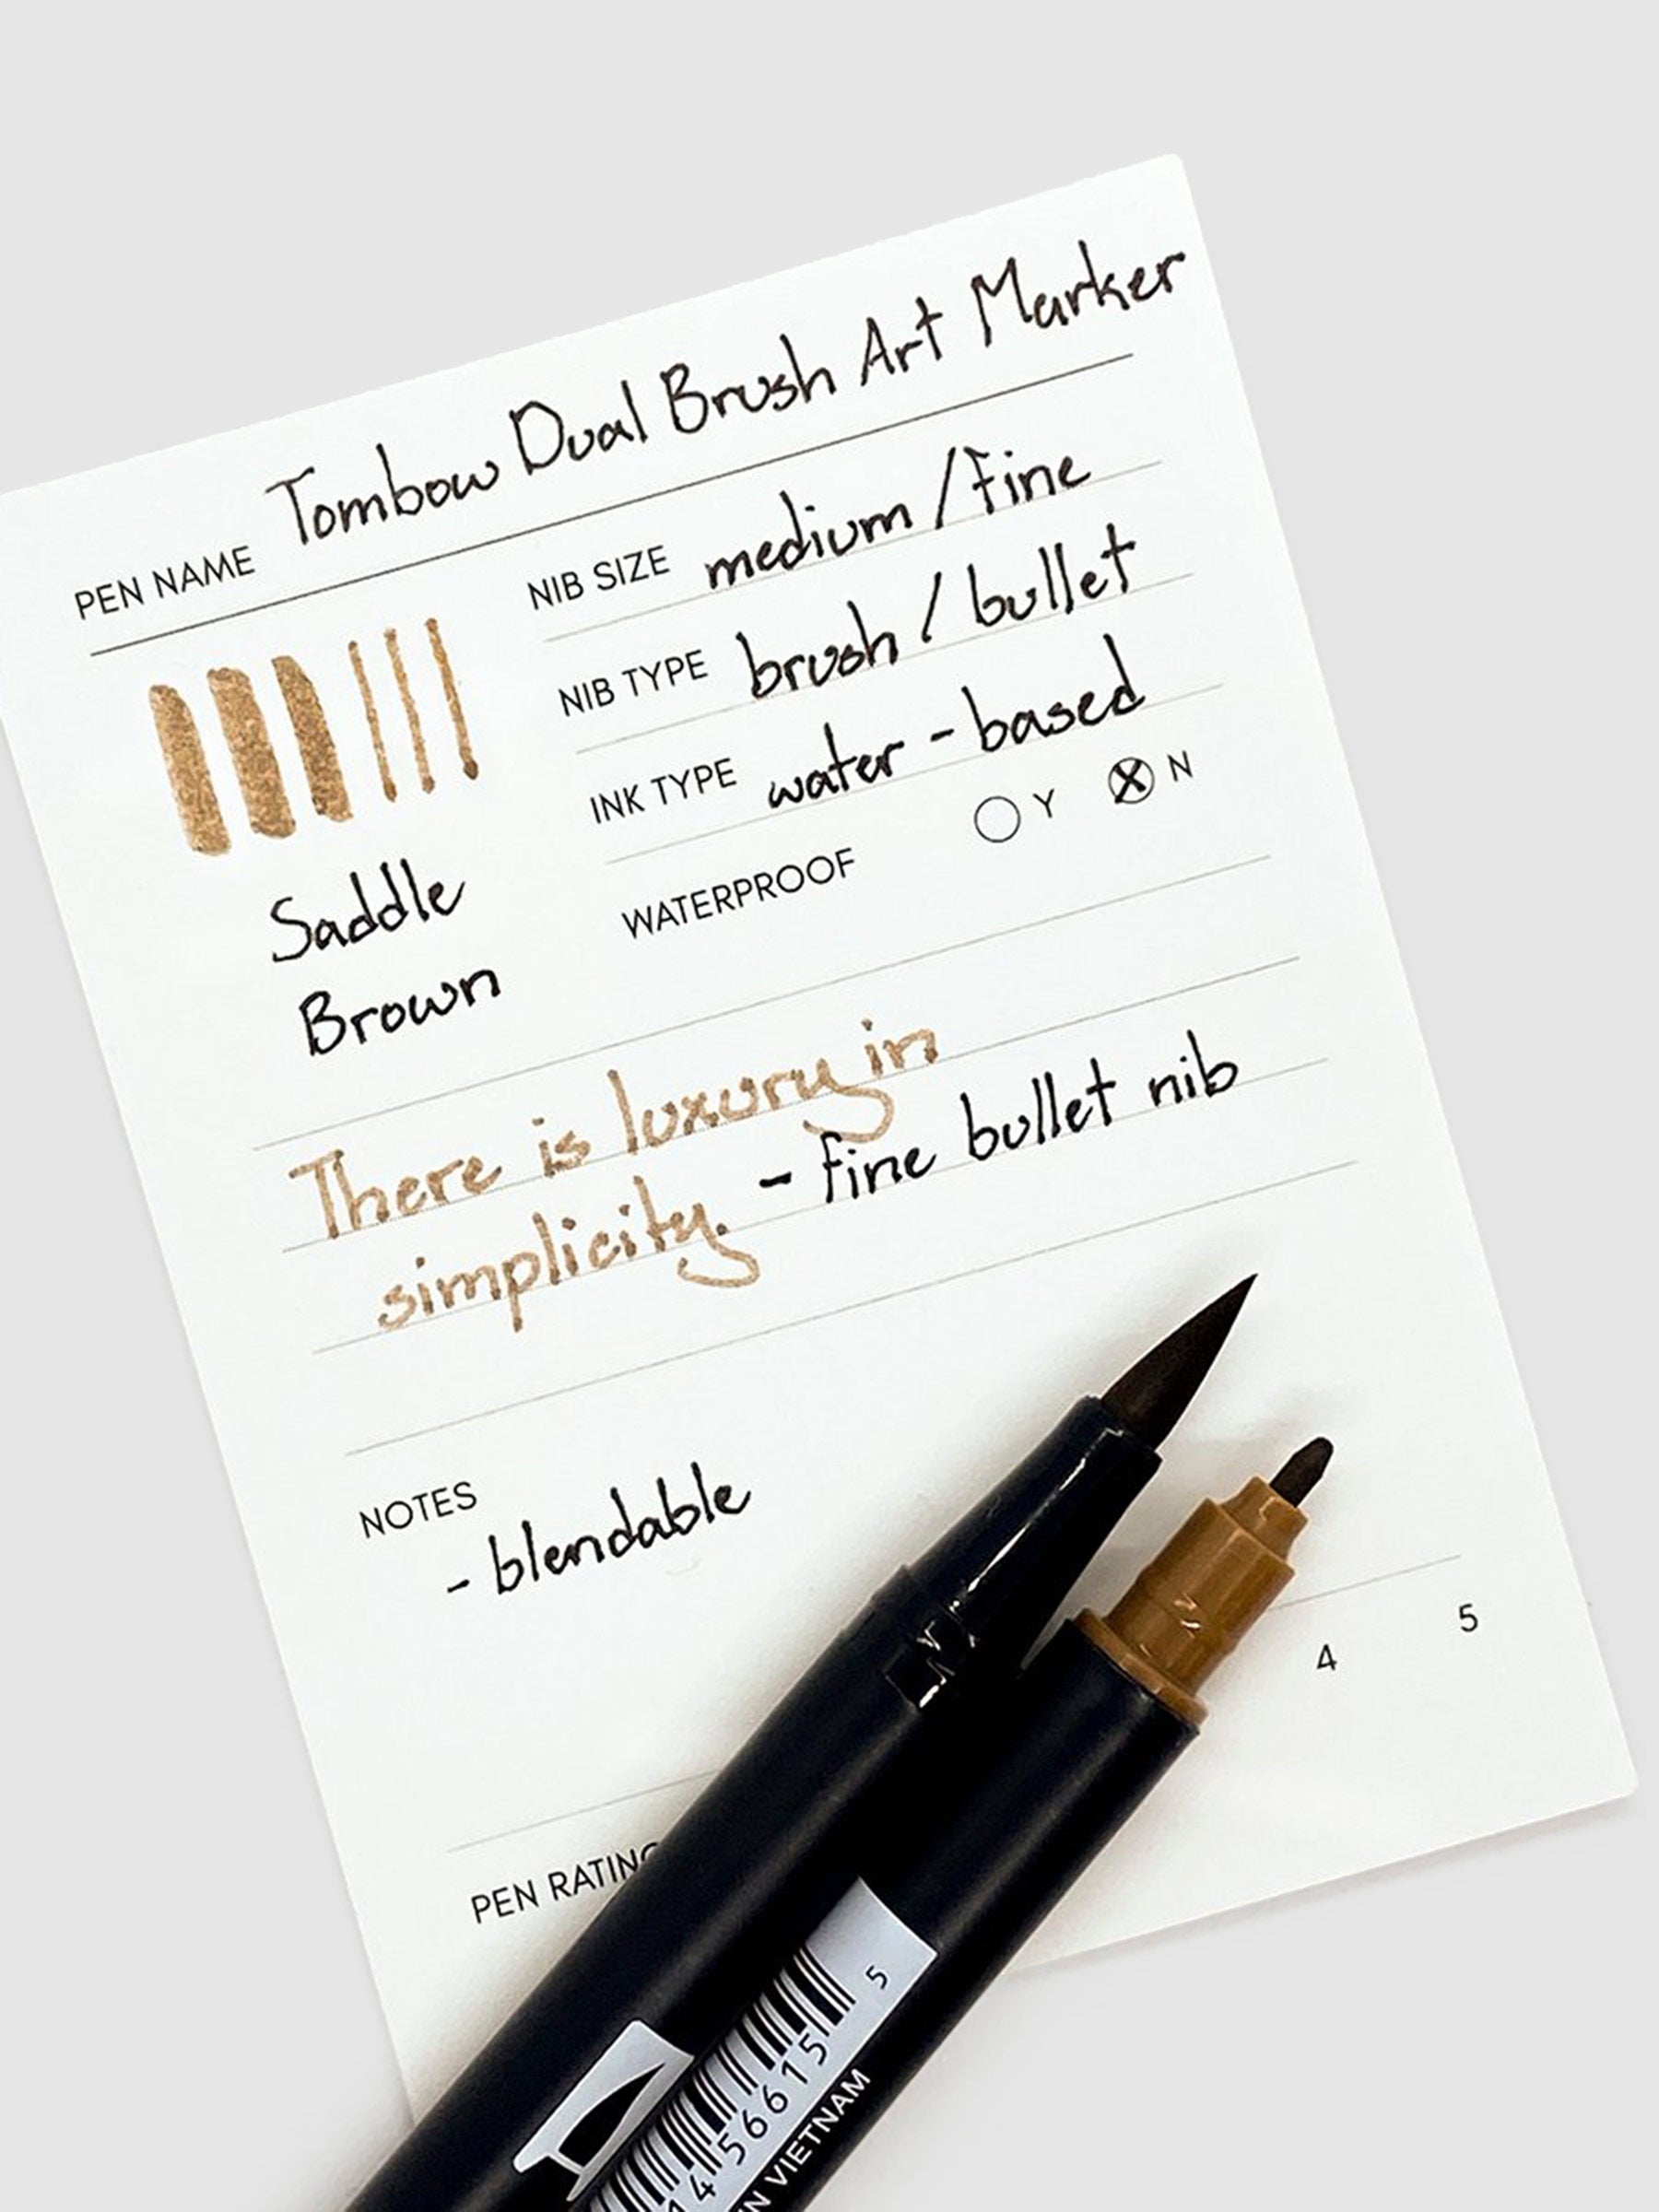 PEN NAME Tombow Dual Brush Art Marker
NIB SIZE medium / fine
NIB TYPE brush / bullet
INK TYPE water - based
WATERPROOF Y N
Saddle
Brown
There is luxury in
simplicity. - fine bullet nib
NOTES
- blendable
4 5
PEN RATING
5
1456615
IN VIETNAM